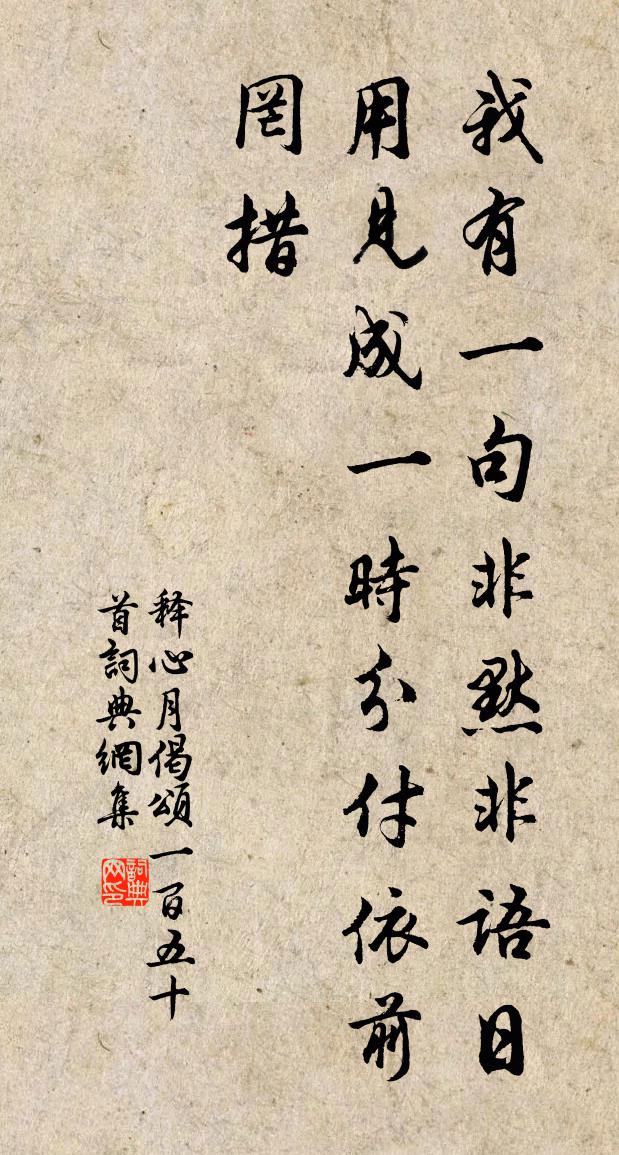 我有一句非默非語日
用見成一時分付依前
罔措
释心月偈頌一百五十
首詞典網集
詞典网印